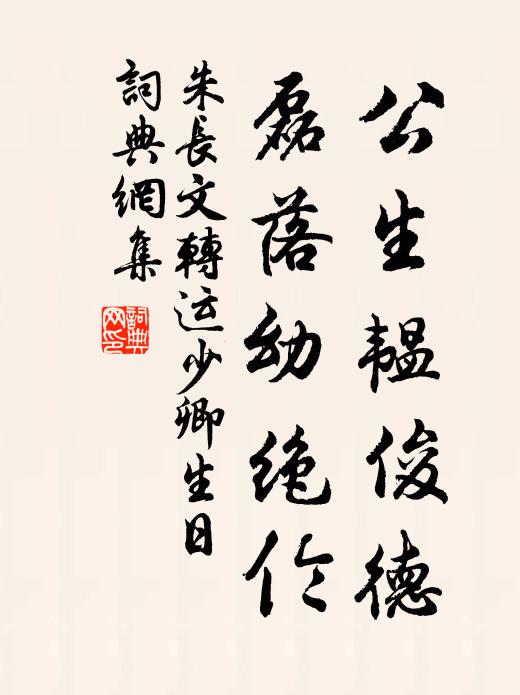 公生韞俊德
磊落幼絶倫
朱長文轉运少卿生日
詞典網集
詞典网印